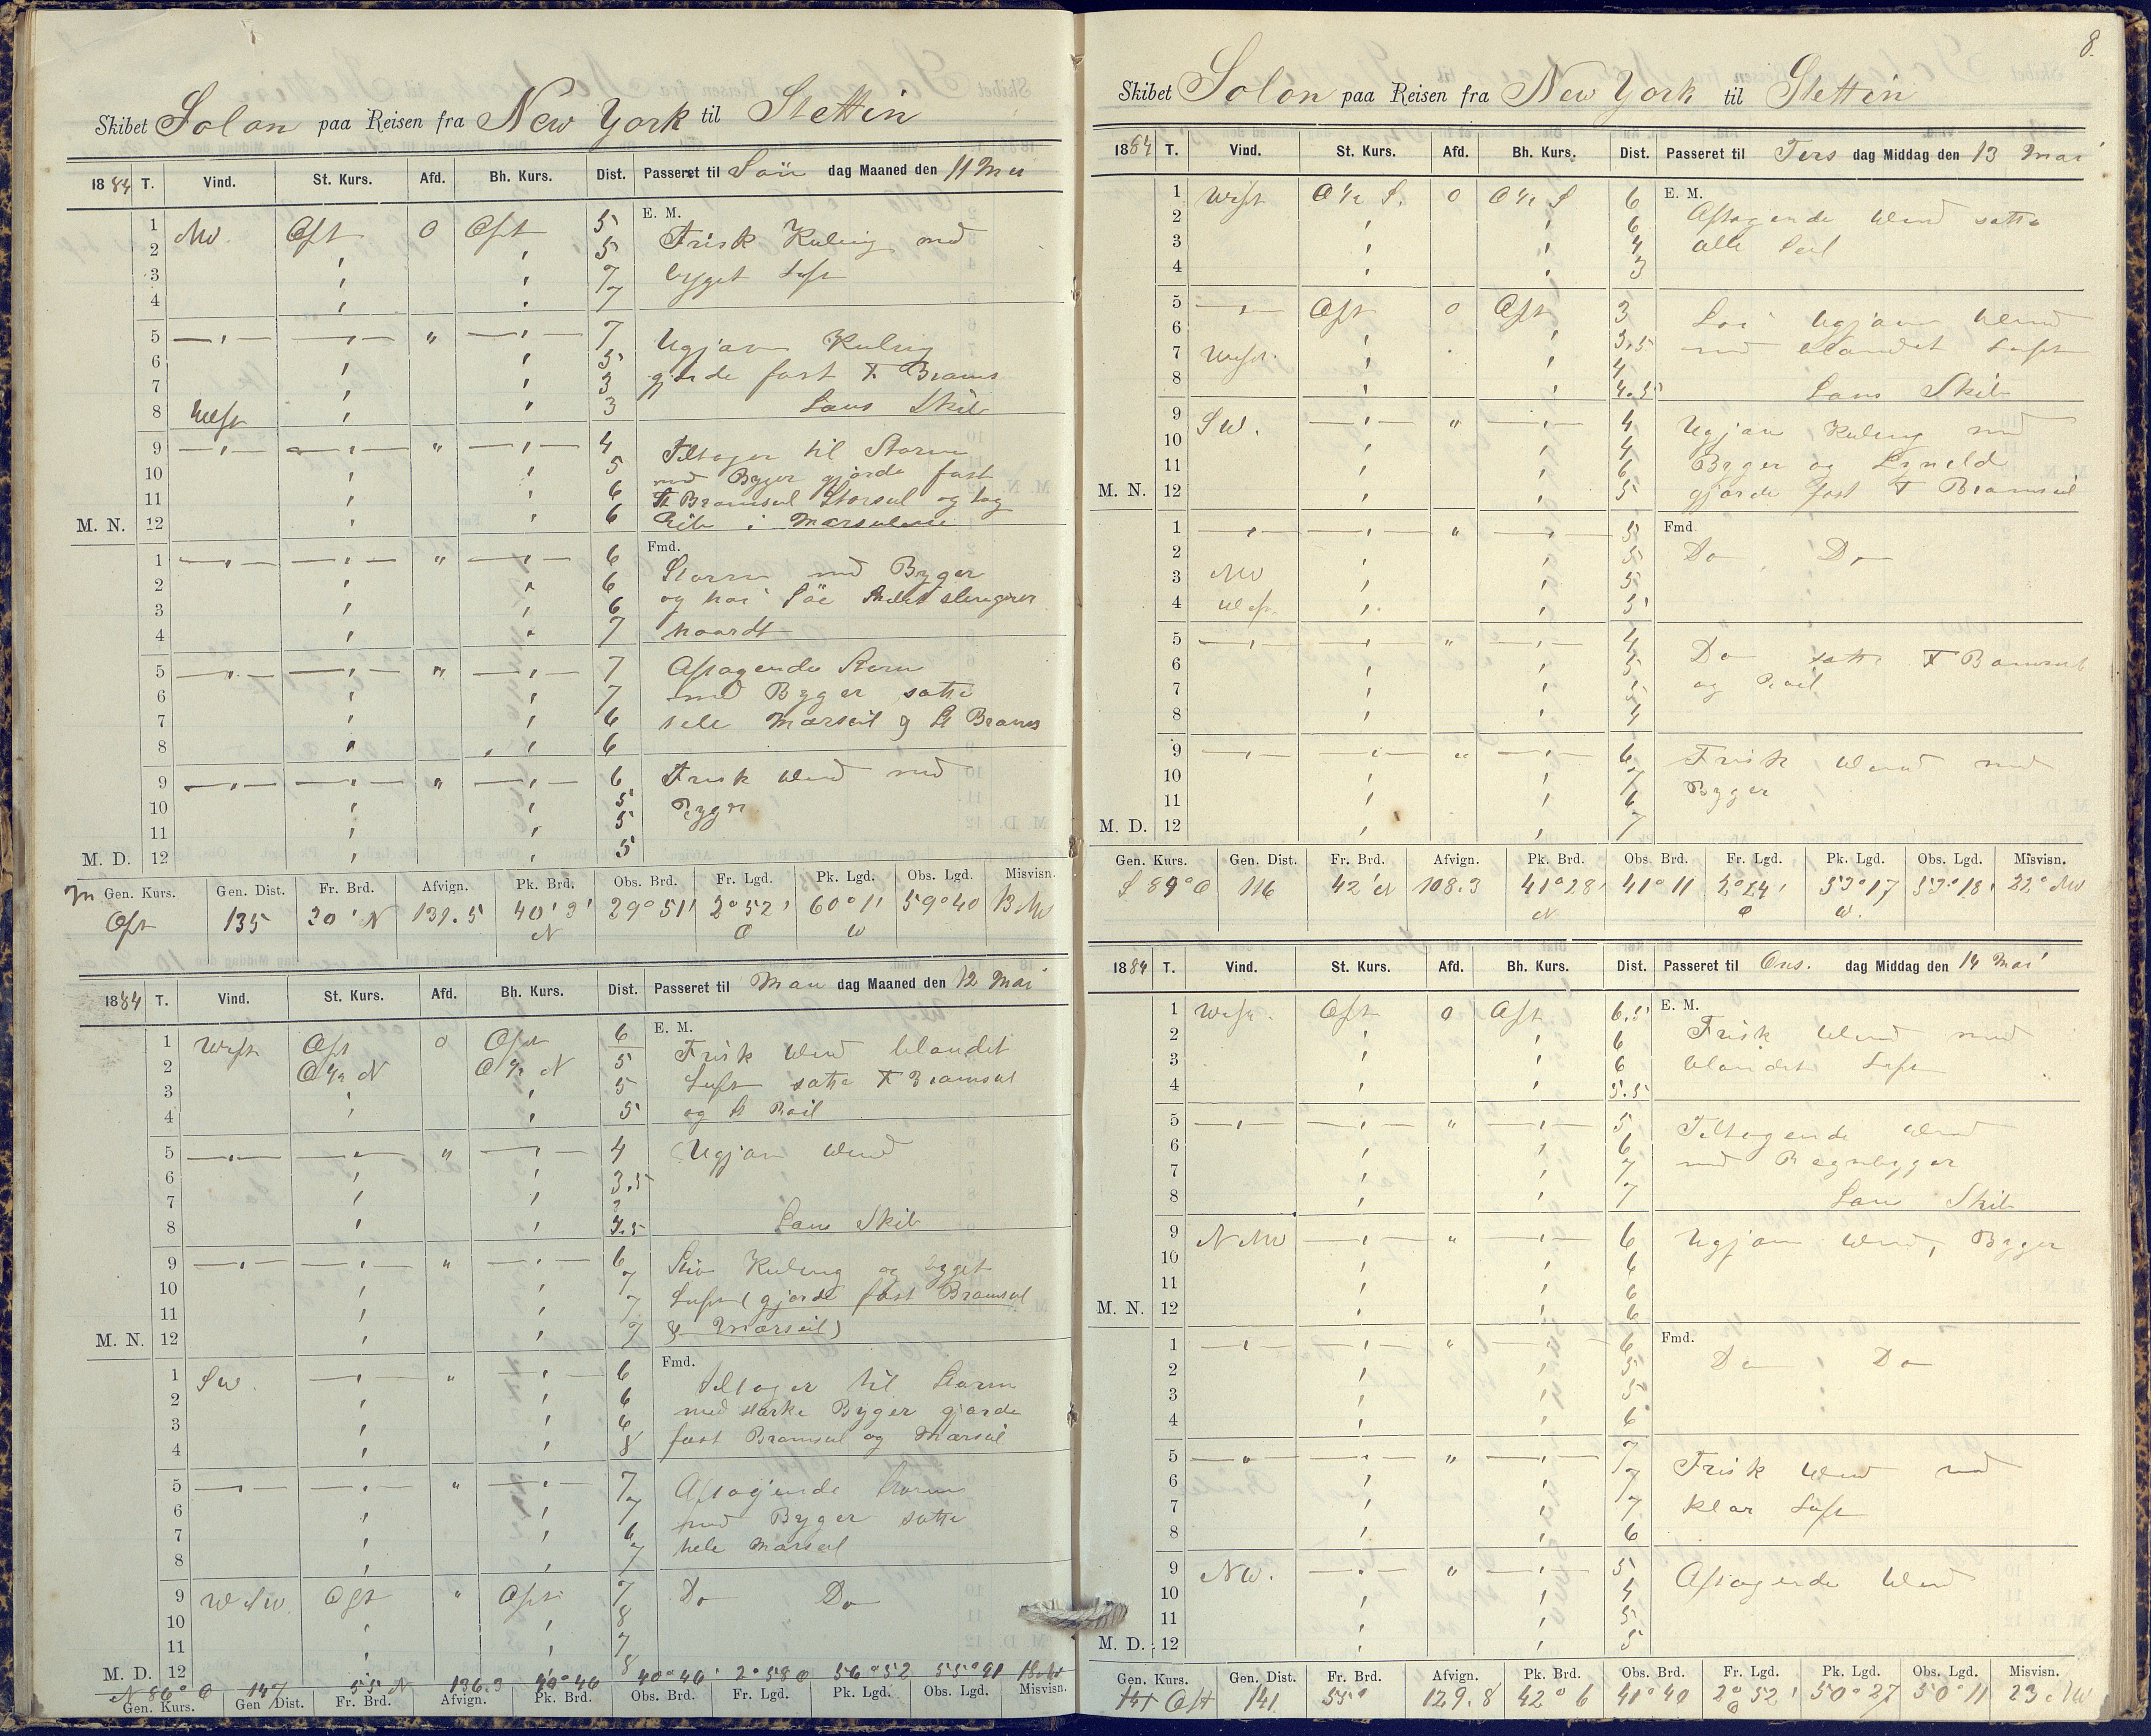 Skibet Solon paa Reisen fra New York til Stettin
1884 T. Vind. St. Kurs. Afd. Bh. Kurs. Dist. Passeret til Sön dag Maaned den 11 Mai
E. M.
1 NW. Ost 0 Ost 5 Frisk Kuling med
2 5 byget Luft
3 7
4 7
5 7 Ugjævn Kuling
6 5 gjorde fast F. Brams
7 3
8 West 3 Lens Skib
9 4 Tiltager til Storm
10 5 med Byger gjorde fast
11 6 St Bramseil Storseil og tog
M. N. 12 6 Reb i Mærseilene
Fmd.
1 6 Storm med Byger
2 6 og høi Söe Skibet slingrer
3 6 haardt
4 7
5 7 Aftagende Storm
6 7 med Byger satte
7 6 hele Mærseil og St Brams
8 6
9 6 Frisk Vind med
10 5 Byger
11 5
M. D. 12 5
Gen. Kurs. Gen. Dist. Fr. Brd. Afvign. Pk. Brd. Obs. Brd. Fr. Lgd. Pk. Lgd. Obs. Lgd. Misvisn.
Ost 135 20' N 131.5 40° 3' N 39° 51' 2° 52' O 60° 1' W 59° 40
1884 T. Vind. St. Kurs. Afd. Bh. Kurs. Dist. Passeret til Man dag Maaned den 12 Mai
E. M.
1 West Ost 0 Ost 6 Frisk Vind blandet
2 O ½ N O ½ N 5 Luft satte F Bramseil
3 5 og St Roil
4 5
5 4 Ugjævn Vind
6 3.5
7 3
8 4.5 Lens Skib
9 6 Stiv Kuling og byget
10 7 Luft (gjorde fast Bramseil
11 7 Mærseil)
M. N. 12 7
Fmd.
1 SW. 6 tiltager til Storm
2 6 med stærke Byger gjorde
3 6 fast Bramseil og Mærseil
4 8
5 7 Aftagende Storm
6 7 med Byger satte
7 6 hele Mærseil
8 7
9 WSW Ost Ost 7 Do Do
10 8
11 7
M. D. 12 8
N 86° O 147 55 N 136.3 40° 46 40° 46' 2° 58 O 56° 52 55° 41
Gen. Kurs. Gen Dist. Fr. Brd. Afvign. Pk. Brd. Obs. Brd. Fr. Lgd. Pk. Lgd. Obs. Lgd. Misvisn.
8.
Skibet Solon paa Reisen fra New York til Stettin
1884 T. Vind. St. Kurs. Afd. Bh. Kurs. Dist. Passeret til Tirs dag Middag den 13 Mai
E. M.
1 West O ½ S. 0 O ½ S 6 Aftagende Vind satte
2 6 alle Seil
3 4
4 3
5 Ost 0 Ost 3 Löi ugjævn Vind
6 3.5 med blandet Luft
7 West. 4
8 4.5 Lens Skib
9 SW. 4 Ugjævn Kuling med
10 4 Byger og Lyneld
11 6 gjorde fast F Bramseil
M. N. 12 5
Fmd
1 5 Do Do
2 5
3 NW 5
4 West. 5
5 4 Do satte F Bramseil
6 5 og Roil
7 5
8 4
9 6 Frisk Vind med
10 7 Byger
11 6
M. D. 12 7
Gen. Kurs. Gen. Dist. Fr. Brd. Afvign. Pk. Brd. Obs. Brd. Fr. Lgd. Pk. Lgd. Obs. Lgd. Misvisn.
S 89° O 116 42' N 108.3 41° 28' N 41° 11 2° 24' O 53° 17 W. 53° 18' 22° NW
1884 T. Vind. St. Kurs. Afd. Bh. Kurs. Dist. Passeret til Ons. dag Middag den 14 Mai
E. M.
1 West. Ost 0 Ost 6.5 Frisk Vind med
2 6 blandet Luft
3 6
4 5.5
5 5 Tiltagende Vind
6 6 med Regnbyger
7 7
8 7 Lens Skib
9 NNW 6 Ugjævn Vind, Byger
10 6
11 6
M. N. 12 6
Fmd.
1 6 Do Do
2 5
3 5
4 6
5 7 Frisk Vind med
6 7 klar Luft
7 7
8 6
9 NW. 5 Aftagende Vind
10 4
11 5
M. D. 12 5
Gen. Kurs. Gen. Dist. Fr. Brd. Afvign. Pk. Brd. Obs. Brd. Fr. Lgd. Pk. Lgd. Obs. Lgd. Misvisn.
Ost 141 55° 129.8 42° 6 41° 40 2° 52' O 50° 27 50° 11 23 NW